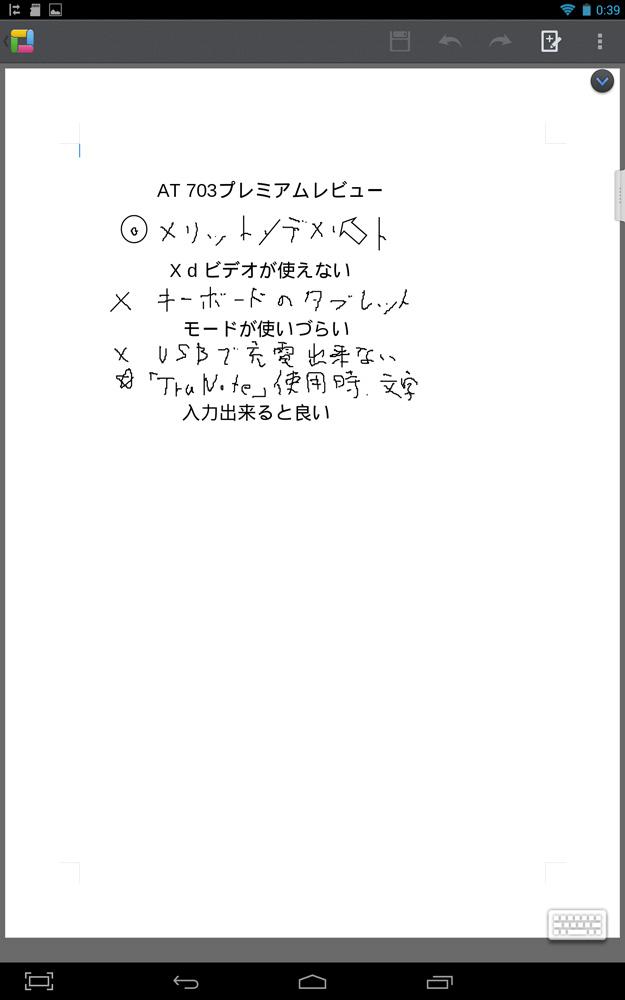 0:39
AT 703プレミアムレビュー
◎ メリット/デメリット
X d ビデオが使えない
× キーボードのタブレット
モードが使いづらい
× USBで充電出来ない
☆「TruNote」使用時、文字
入力出来ると良い